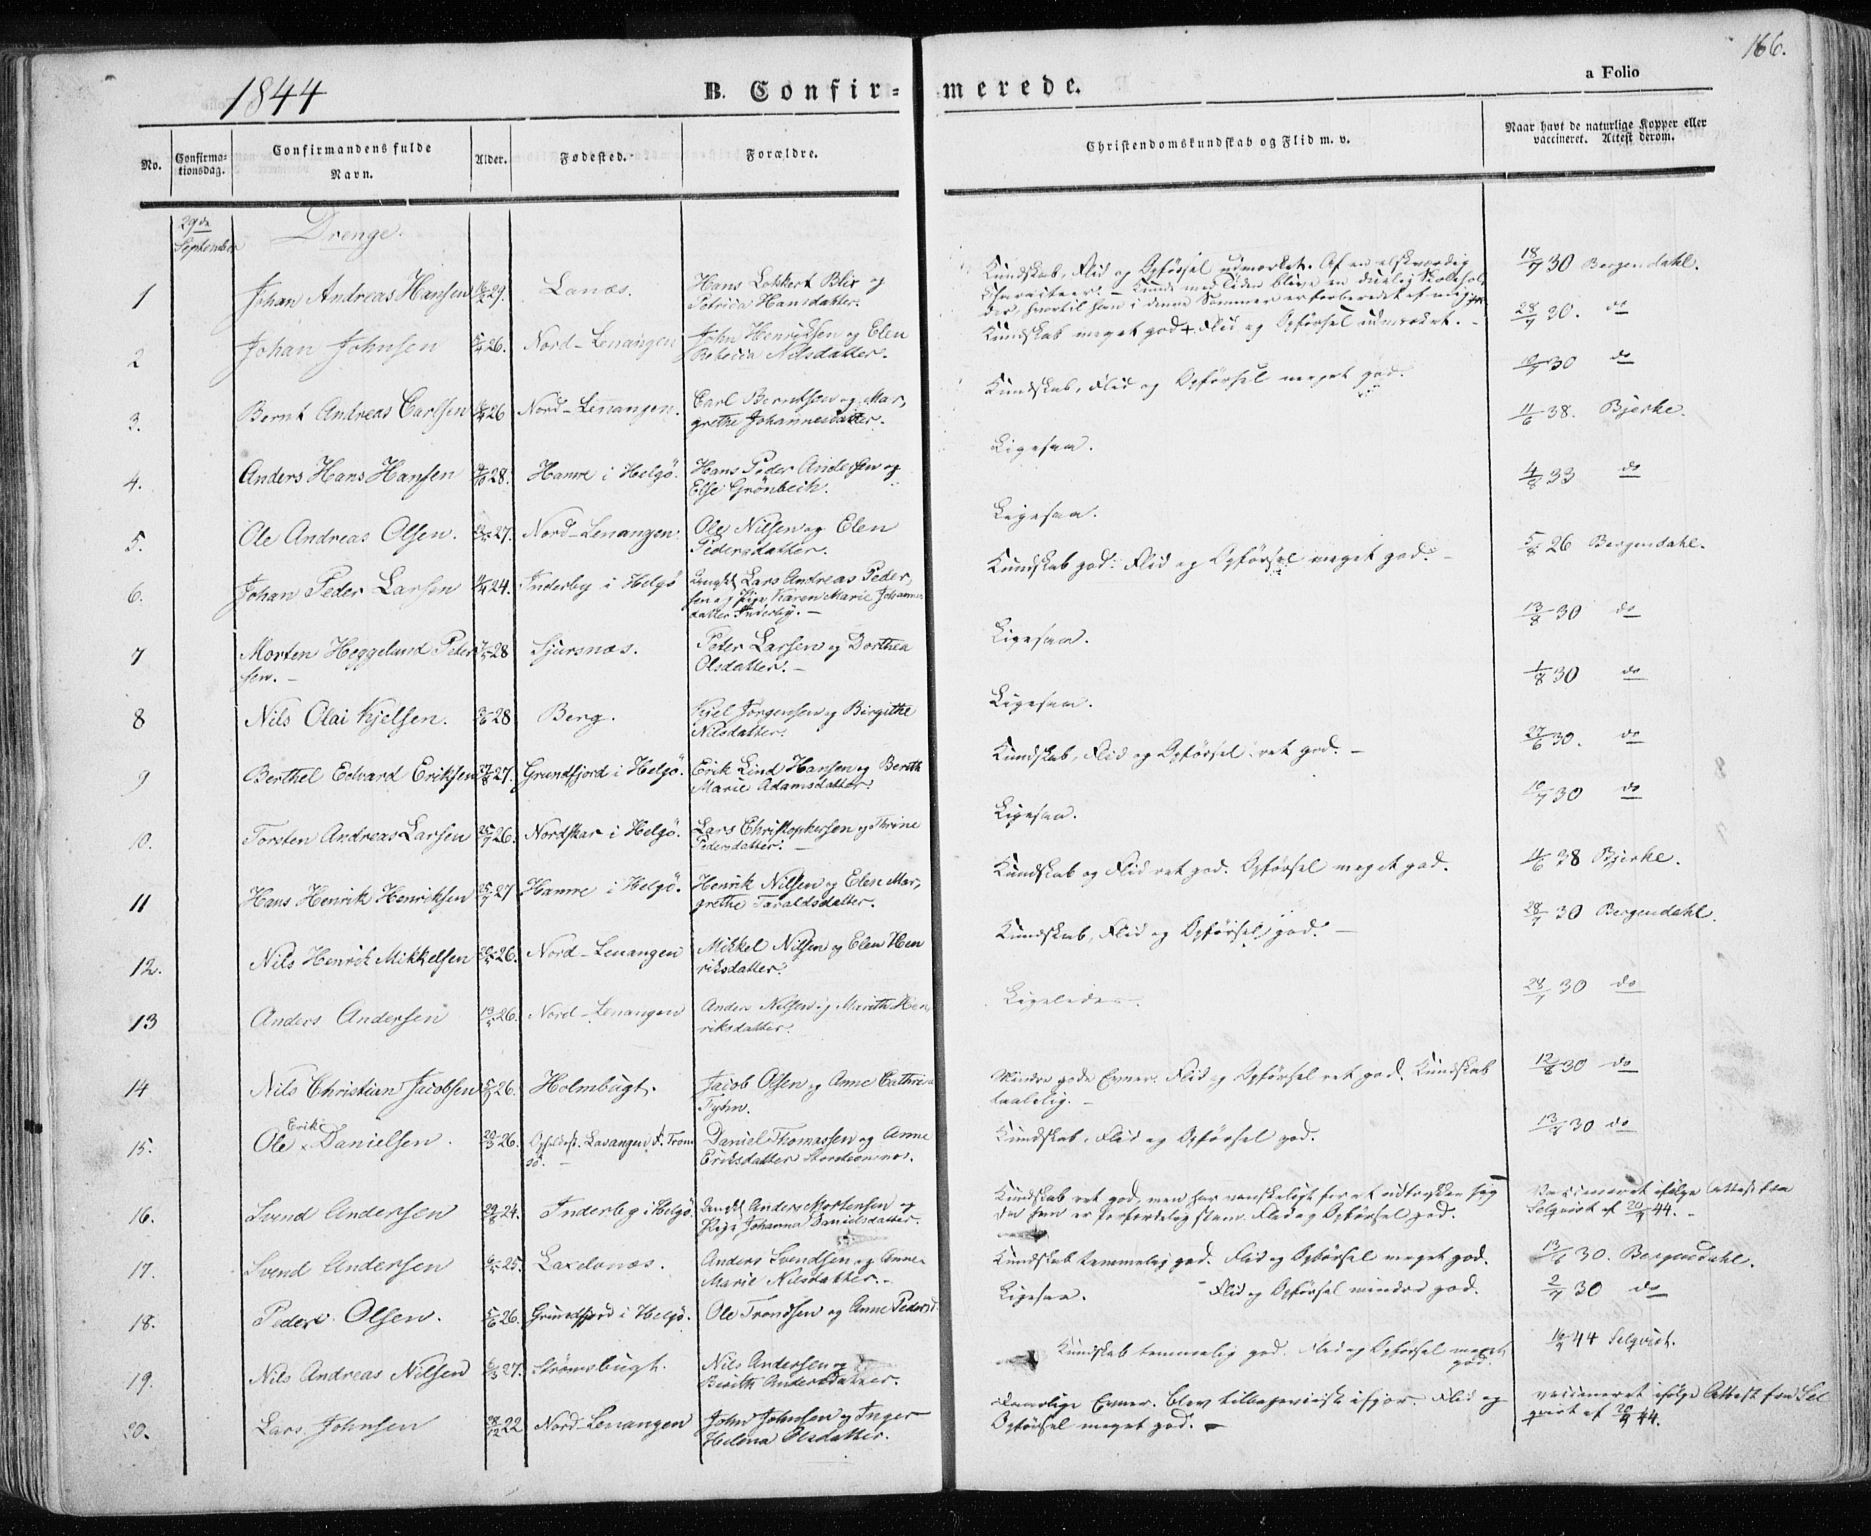 166.
1844
B. Confir-
merede.
a Folio
No.
Confirma-
tionsdag.
Confirmandens fulde
Navn.
Alder.
Fødested.
Forældre.
Christendomskundskab og Flid m. v.
Naar havt de naturlige Kopper eller
vaccineret. Attest derom.
29de
September
Drenge.
1 Johan Andreas Hansen 29. Lanæs. Hans Lokkert Blix og
Petrica Hansdatter.
Kundskab, Flid og Opførsel udmærket. Af en elskværdig
Characteer. - Kunde med Tiden blive en duelig Skolehol-
der, hvortil han i denne Sommer er forberedet af mig
18/7 30 Bergendahl.
2 Johan Johnsen 26. Nord-Lenangen John Henriksen og Elen
Rebecca Nilsdatter.
Kundskab meget god + Flid og Opførsel udmærket. -
28/7 30. do
3. Bernt Andreas Carlsen 26 Nord-Lenangen. Carl Berntsen og Mar-
grethe Johannesdatter.
Kundskab, Flid og Opførsel meget god.
30 do
4. Anders Hans Hansen 28. Hamre i Helgö. Hans Peder Andersen og
Else Grönbech.
Ligesaa.
11/6 38. Bjerke.
5. Ole Andreas Olsen. 27. Nord-Lenangen. Ole Nilsen og Elen
Pedersdatter.
Ligesaa.
4/8 33 do
6. Johan Peder Larsen 24. Inderby i Helgö Ungkl Lars Andreas Peder-
sen og Pige Karen Marie Johannes
datter Inderby. -
Kundskab god. Flid og Opførsel meget god. -
5/8 26 Bergendahl.
7 Morten Heggelund Peder 28 Sjursnæs. Peter Larsen og Dorthea
sen. - Olsdatter. -
Ligesaa.
13/8 30 do
8 Nils Olai Kjelsen. 28 Berg. Kjel Jörgensen og Birgithe
Nilsdatter.
Ligesaa.
1/8 30 do
9 Berthel Edvard Eriksen 27. Grundfjord i Helgö. Erik Lind Hansen og Berith
Marie Adamsdatter.
Kundskab, Flid og Opførsel ret god. -
27/6 30. do
10. Torsten Andreas Larsen 26. Nordskar i Helgö. Lars Christophersen og Thrine
Pedersdatter. -
Ligesaa.
30 do
11 Hans Henrik Henriksen 27 Hamre i Helgö. Henrik Nilsen og Elen Mar-
grethe Taraldsdatter.
Kundskab og Flid ret god. Opførsel meget god.
11/6 38 Bjerke.
12. Nils Henrik Mikkelsen 26. Nord-Lenangen Mikkel Nilsen og Elen Hen
riksdatter.
Kundskab, Flid og Opførsel god. -
28/7 30 Bergendahl.
13 Anders Andersen 26. Nord-Lenangen Anders Nilsen og Marith Hen
riksdatter.
Ligeledes.
28/7 30 do
14 Nils Christian Jacobsen 26. Holmbugt. Jacob Olsen og Anne Cathrina
Fyhn.
Mindre gode Evner. Flid og Opførsel ret god. Kundskab
taalelig. -
12/8 30 do
Erik
15. Ole Danielsen. 26. Lavangen Trom
sö. - Daniel Thomassen og Anne
Eriksdatter
Kundskab, Flid og Opførsel god.
30 do
16. Svend Andersen 24. Inderby i Helgö. Ungkl Anders Mortensen og
Pige Johanna Danielsdatter.
Kundskab ret god, men har vanskeligt for at udtrykke sig
da han er stam. Flid og Opførsel god.
Vaccineret ifølge Attest fra
Selqvist af 44. -
17. Svend Andersen 25. Laxelvnæs. Anders Svendsen og Anne
Marie Nilsdatter. -
Kundskab temmelig god. Flid og Opførsel meget god.
30. Bergendahl.
18. Peder Olsen. 26. Grundfjord i Helgö. Ole Trondsen og Anne Pedersd
Ligesaa. - Flid og Opførsel mindre god.
2/7 30 do
19. Nils Andreas Nilsen 27. Strömsbugt. Nils Andersen og
Berith Andersdatter.
Kundskab temmelig god. Flid og Opførsel meget
god.
44 Selqvist.
20. Lars Johnsen 22 Nord-Lenangen John Johnsen og Inger
Helena Olsdatter.
Daarlige Evner. Blev tilbageviist ifjor. Flid og
Opførsel meget god. -
vaccineret ifølge Attest fra Sel
qvist af 44.